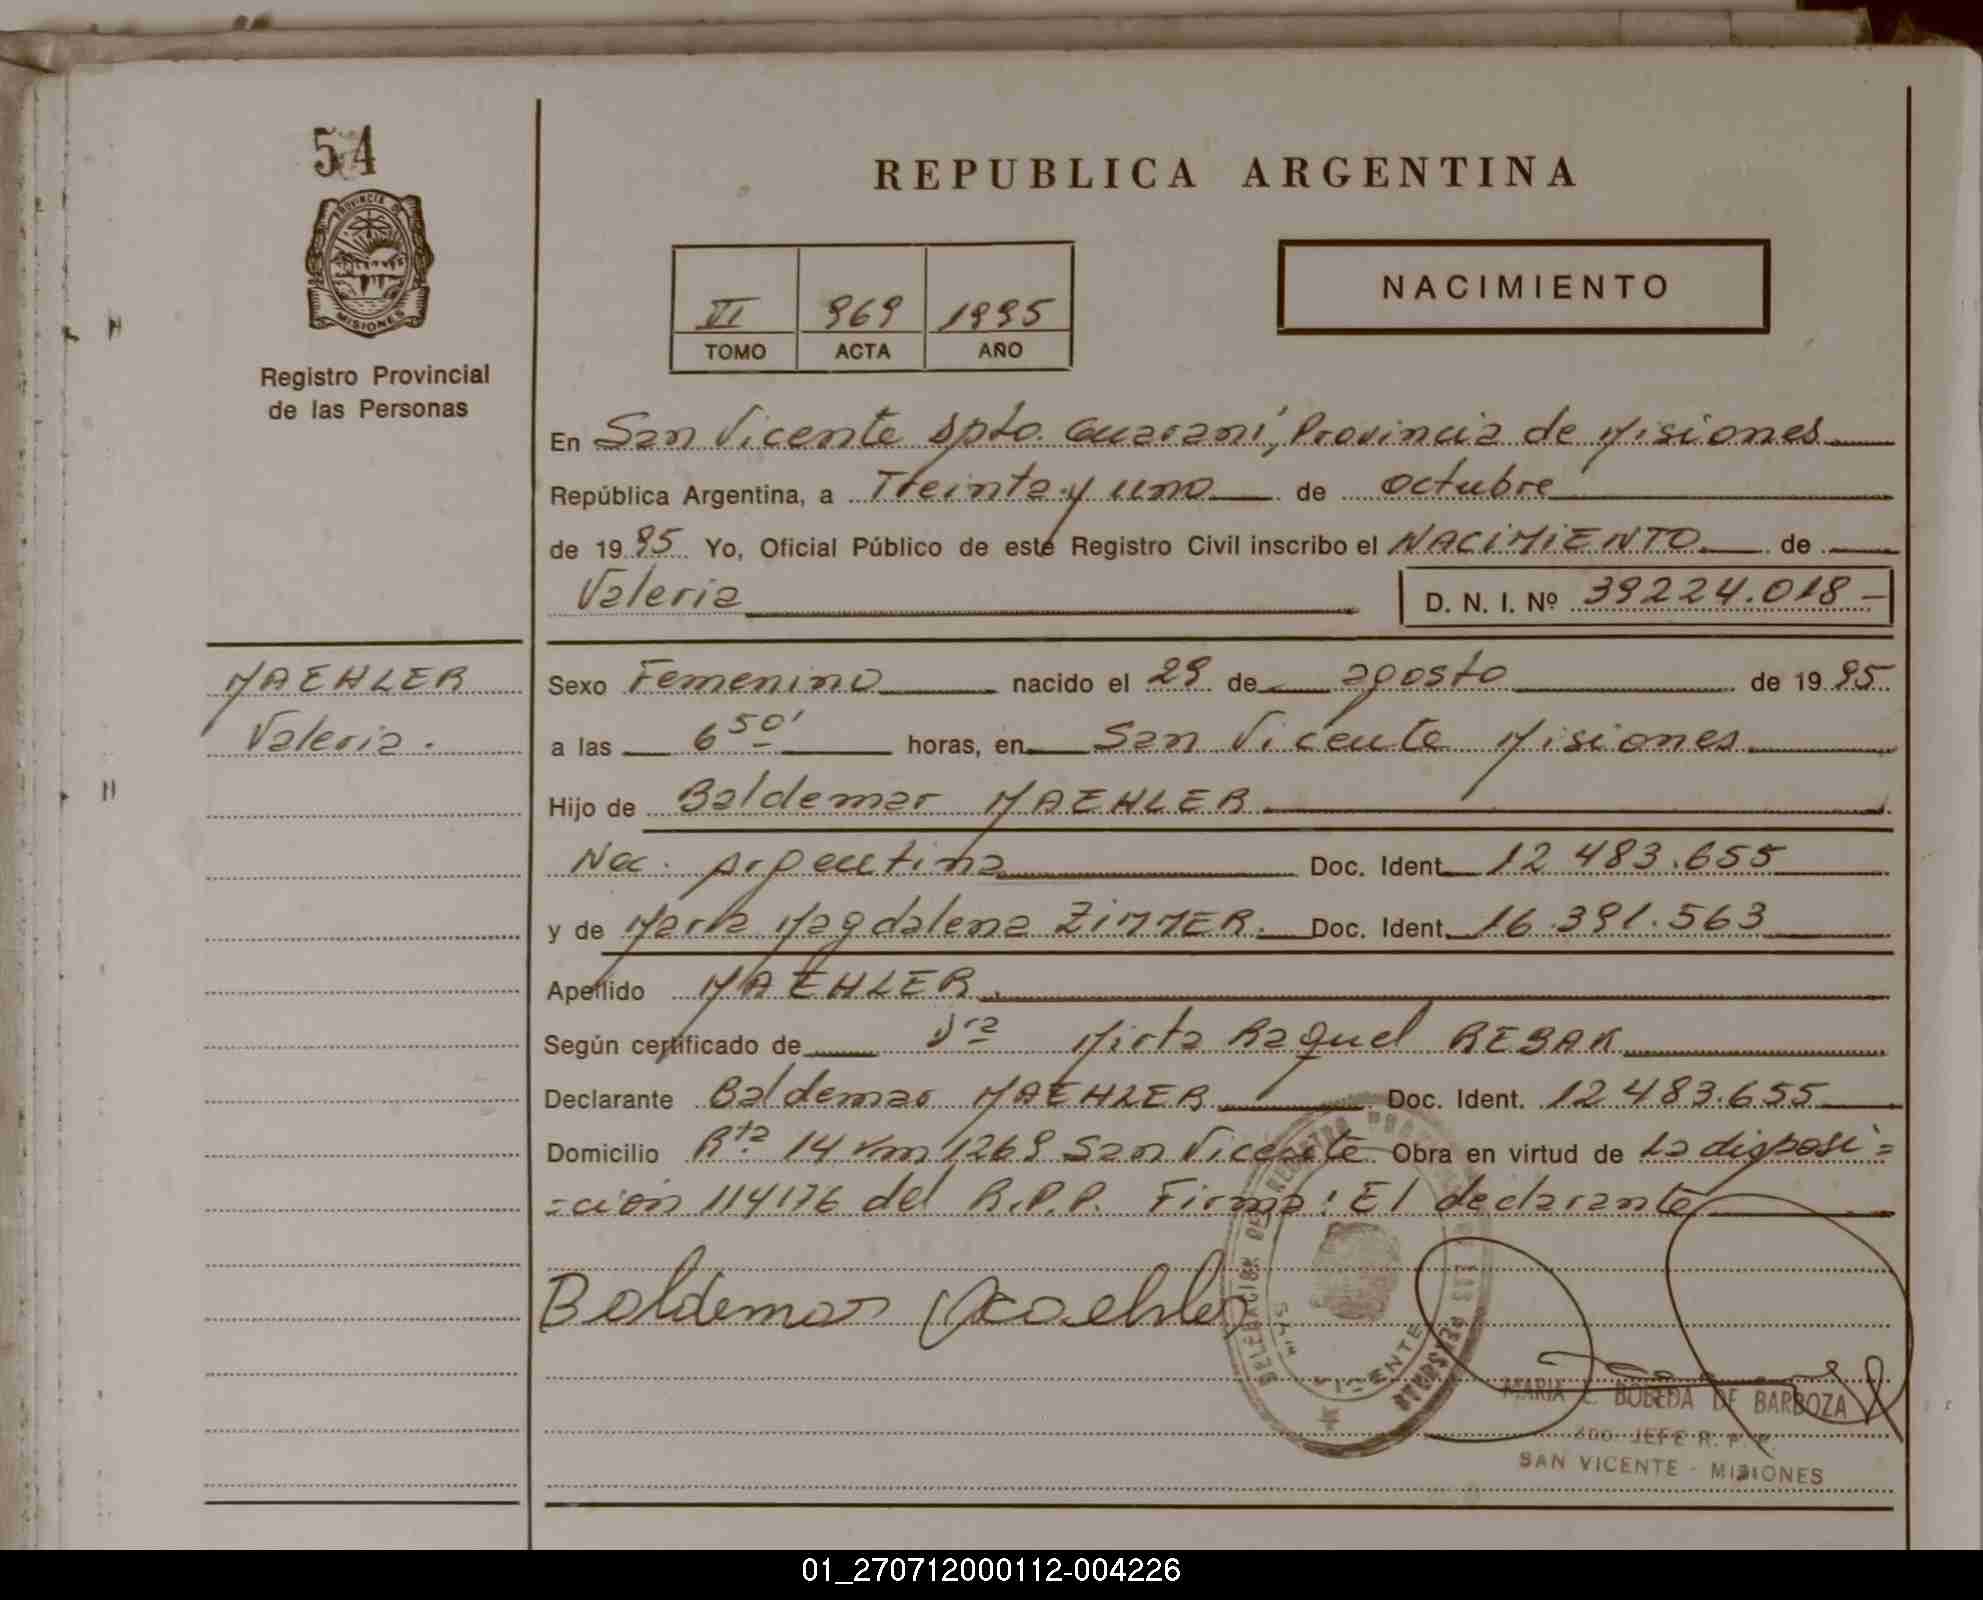 54
PROVINCIA DE
MISIONES
Registro Provincial
de las Personas
REPUBLICA ARGENTINA
VI 969 1995
TOMO ACTA AÑO
NACIMIENTO
En San Vicente Dpto. Guaraní, Provincia de Misiones
República Argentina, a Treinta y uno de octubre
de 1995 Yo, Oficial Público de este Registro Civil inscribo el NACIMIENTO de
Valeria D. N. I. Nº 39224.018-
MAEHLER
Valeria.
Sexo Femenino nacido el 29 de agosto de 1995
a las 6 50' horas, en San Vicente Misiones
Hijo de Baldemar MAEHLER
Nac. Argentina Doc. Ident. 12 483.655
y de María Magdalena ZIMMER. Doc. Ident. 16.391.563
Apellido MAEHLER.
Según certificado de Dra Mirta Raquel REBAK
Declarante Baldemar MAEHLER Doc. Ident. 12 483.655
Domicilio Rta. 14 km 1269 San Vicente Obra en virtud de La disposi=
=ción 114176 del R.P.P. Firma: El declarante
Baldemar Maehler
DELEGACION DEL REGISTRO PROVINCIAL DE LAS PERSONAS
SAN VICENTE
MARIA L. BOBEDA DE BARBOZA
2DO. JEFE R. P. P.
SAN VICENTE - MISIONES
01_270712000112-004226